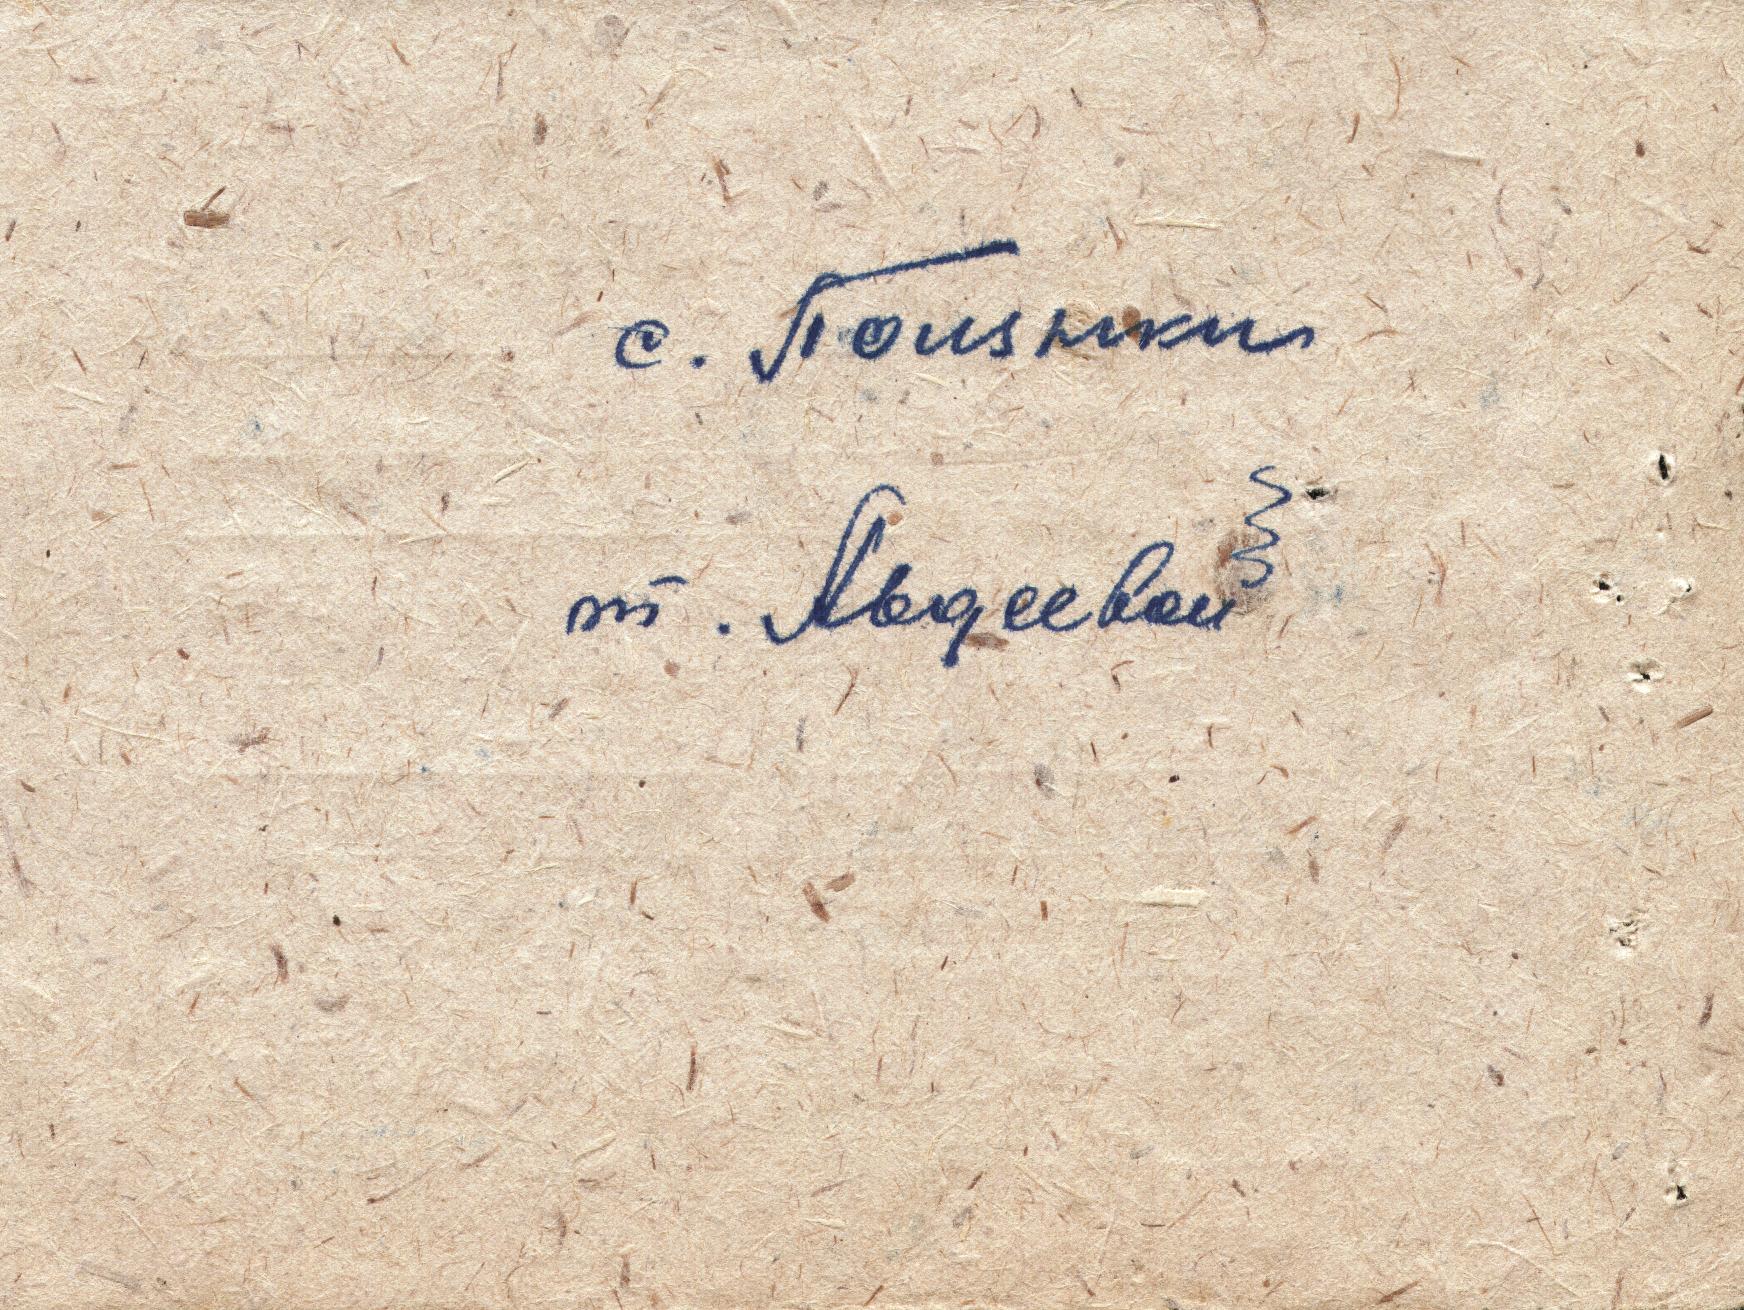 с. Полянки
т. Авдеевой